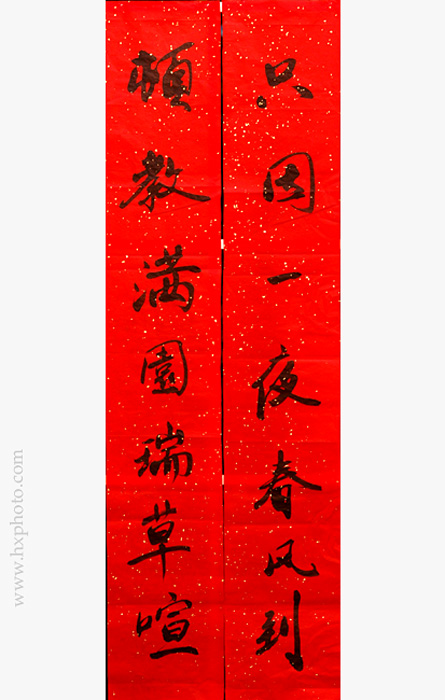 只因一夜春风到
頓教满園瑞草喧
www.hxphoto.com